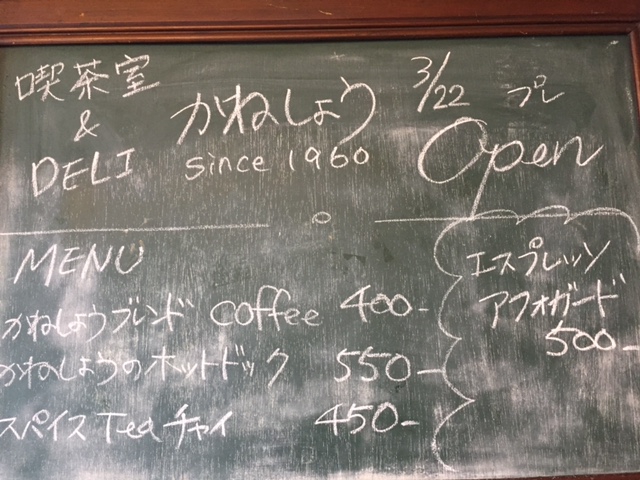 喫茶室
&
DELI
かねしょう
since 1960
3/22 プレ
Open
MENU
かねしょうブレンド coffee 400-
かねしょうのホットドック 550-
スパイス Tea チャイ 450-
エスプレッソ
アフォガード
500-